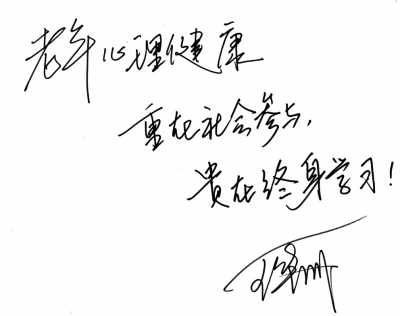 老年心理健康
重在社会参与,
贵在终身学习!